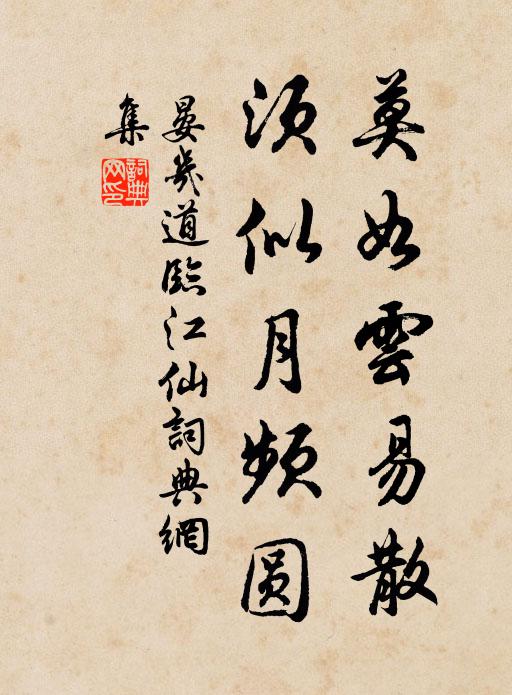 莫如雲易散
須似月頻圓
晏幾道臨江仙詞典網
集
詞典
网印